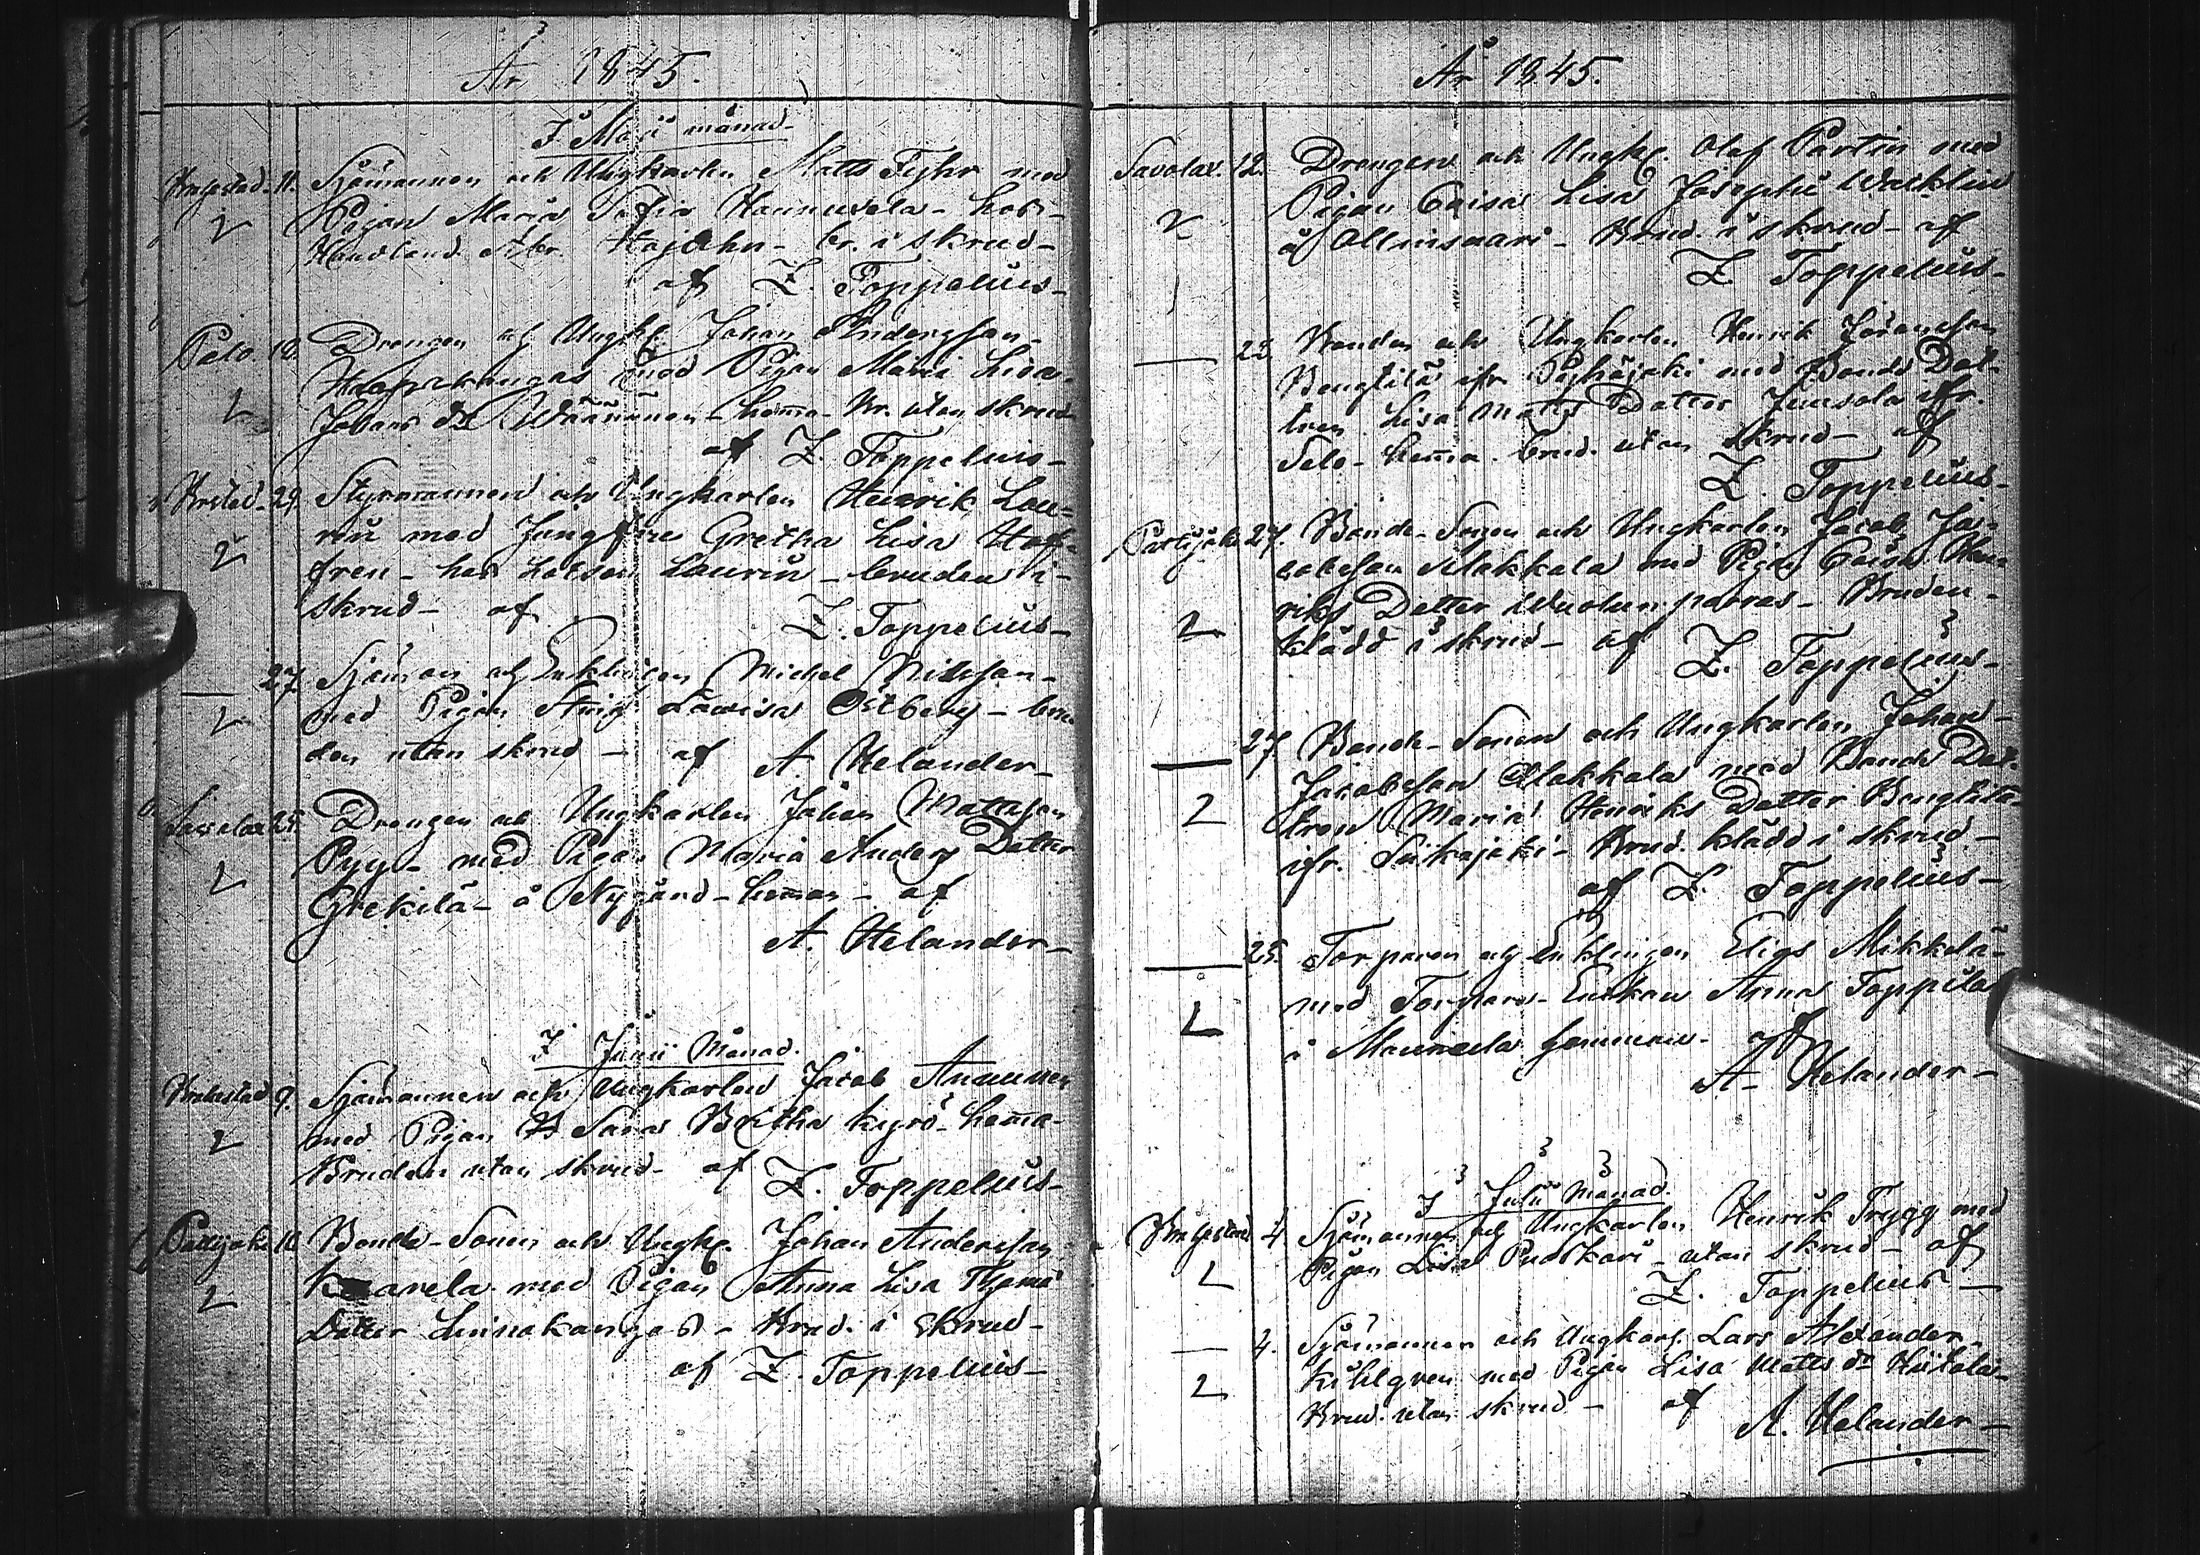 År 1845.
I Maji månad
Brahestad. 11. Sjömannen och Ungkarlen Matts Fyhr med
2 Pigan Maria Sofia Hannuvela - hos -
Handland. Abr. Höjdahn - br. i skrud -
af Z. Toppelius -
Palo. 18. Drengen och Ungk. Johan Andersson
Haapakangas med Pigan Maria Lisa
2 Johans dr Wäänänen - hemma - Br. utan skrud
af Z. Toppelius -
Brstad. 29. Styrmannen och Ungkarlen Henrik Lau-
rin med Jungfru Gretha Lisa Hof-
2 fren - hos Lotsen Laurin - bruden i -
skrud - af Z. Toppelius -
— 27 Sjöman och Enklingen Michel Nilsson -
2 med Pigan Stina Lovisa Östberg - bru
den utan skrud - af A. Helander -
Savolax 25. Drengen och Ungkarlen Johan Mattsson
Pyy - med Pigan Maria Anders Dotter
2 Grekilä - å Nygård - hemman - af
A. Helander -
I Junii Månad.
Brahestad 9. Sjömannen och Ungkarlen Jacob Annunen
2 med Pigan Sara Britha Kyrö - hemma -
Bruden utan skrud - af Z. Toppelius -
Pattijoki 10 Bonde-Sonen och Ungk. Johan Andersson
2 Kaarela med Pigan Anna Lisa
Dotter Linnakangas - Brud. i Skrud -
af Z. Toppelius -
År 1845.
Savolax. 12. Drengen och Ungk. Olof Partin med
2 Pigan Caisa Lisa Josephi Wacklin
å Ollinsaari - Brud. i skrud - af
Z. Toppelius -
— 22 Bonden och Ungkarlen Henrik Johansson
Bengtilä ifr. Pyhäjoki med Bonde Dot-
tren Lisa Matts Dotter Junsola ifr.
Selo - hemma. brud. utan skrud - af
Z. Toppelius -
Pattijoki 27. Bonde-Sonen och Ungkarlen Jacob Ja-
cobsson Makkala med Pigan Caisa Hen-
2 riks Dotter Wuolunparras - Bruden -
klädd i skrud - af Z. Toppelius -
— 27 Bonde-Sonen och Ungkarlen Johan -
Jacobsson Makkala med Bonde Dot-
2 tren Maria Henriks Dotter Bengtilä
ifr. Siikajoki - Brud. klädd i skrud -
af Z. Toppelius -
— 25. Torparen och Enklingen Elias Mikkelä -
2 med Torpare-Enkan Anna Toppila
å Maunula hemman. af
A. Helander -
I Julii Månad.
Brahestad 4 Sjömannen och Ungkarlen Henrik Trygg med
2 Pigan Lisa Pudskari - utan skrud - af
Z. Toppelius -
— 4. Sjömannen och Ungkarl. Lars Alexander -
2 Kihlgren med Pigan Lisa Matts dr Hiitola -
Brud. utan skrud - af
A. Helander -